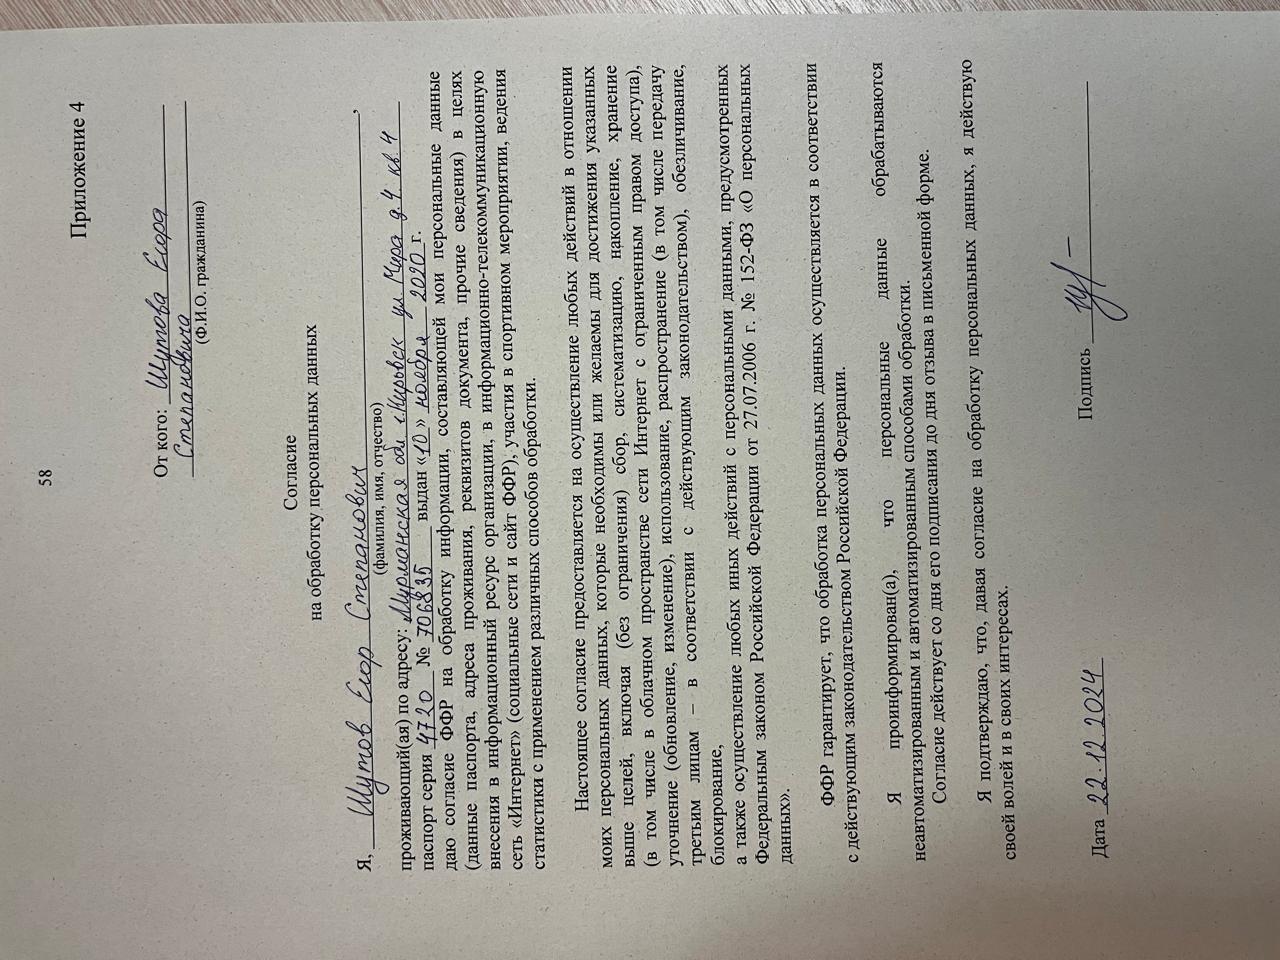 58
Приложение 4
От кого: Шутова Егора
Степановича
(Ф.И.О. гражданина)
Согласие
на обработку персональных данных
Я, Шутов Егор Степанович,
(фамилия, имя, отчество)
проживающий(ая) по адресу: Мурманская обл. г. Кировск ул Мира д. 4 кв. 4
паспорт серия 4720 № 706835 выдан «10» ноября 2020 г.
даю согласие ФФР на обработку информации, составляющей мои персональные данные
(данные паспорта, адреса проживания, реквизитов документа, прочие сведения) в целях
внесения в информационный ресурс организации, в информационно-телекоммуникационную
сеть «Интернет» (социальные сети и сайт ФФР), участия в спортивном мероприятии, ведения
статистики с применением различных способов обработки.
Настоящее согласие предоставляется на осуществление любых действий в отношении
моих персональных данных, которые необходимы или желаемы для достижения указанных
выше целей, включая (без ограничения) сбор, систематизацию, накопление, хранение
(в том числе в облачном пространстве сети Интернет с ограниченным правом доступа),
уточнение (обновление, изменение), использование, распространение (в том числе передачу
третьим лицам – в соответствии с действующим законодательством), обезличивание,
блокирование,
а также осуществление любых иных действий с персональными данными, предусмотренных
Федеральным законом Российской Федерации от 27.07.2006 г. № 152-ФЗ «О персональных
данных».
ФФР гарантирует, что обработка персональных данных осуществляется в соответствии
с действующим законодательством Российской Федерации.
Я проинформирован(а), что персональные данные обрабатываются
неавтоматизированным и автоматизированным способами обработки.
Согласие действует со дня его подписания до дня отзыва в письменной форме.
Я подтверждаю, что, давая согласие на обработку персональных данных, я действую
своей волей и в своих интересах.
Дата 22.12.2024 Подпись